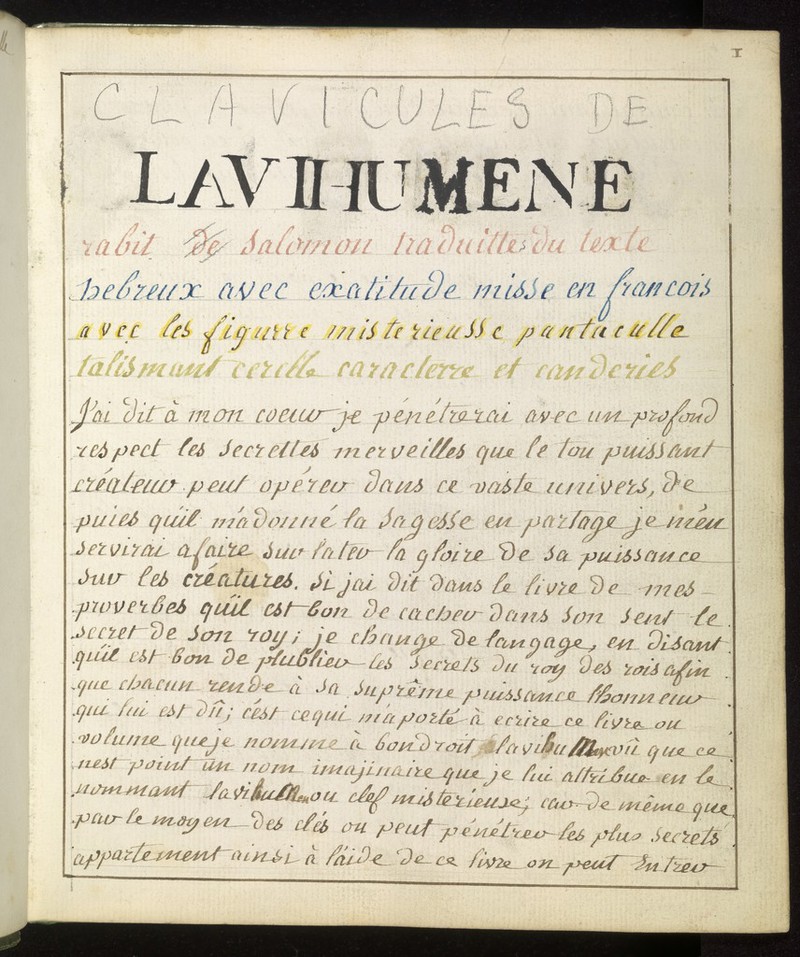 1
CLAVICULES DE
LAVIIHUMENE
rabit de Salomon traduitte du texte
hebreux avec exatitude misse en francois
avec les figurre misterieusse pantaculle
talismant cerclle caracterre et canderies
J'ai dit à mon coeur je pénétrerai avec un profond
respect les secrettes merveilles que le tou puissant
créateur peut opérer dans ce vaste univers, de
puies quil m'adonné la sagesse en partage je m'en
servirai afaire sur later la gloire de sa puissance
sur les créatures. Si jai dit dans le livre de mes
proverbes quil est bon de cacher dans son sent le
secret de son roy; je change de langage, en disant
quil est bon de plublier les secrets du roy des rois afin
que chacun rende à sa suprême puissance l'honneur
qui lui est dû; c'est cequi m'aporté à ecrire ce livre ou
volume queje nomme à bondroit vû que ce
nest point un nom imajinaire que je lui attribue en le
nommant ou clef misterieuse; car de même que
par le moyen des clés on peut pénétrer les plus secrets
appartement ainsi à l'aide de ce livre on peut Entrer